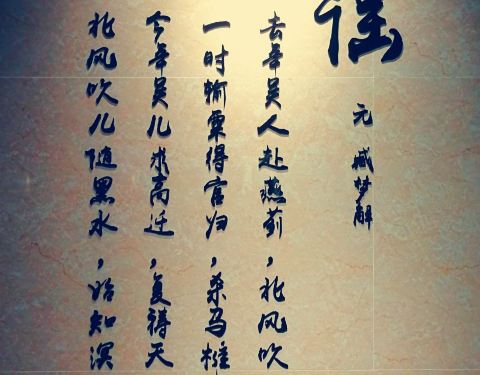 谣
元 臧梦解
去年吴人赴燕蓟,北风吹
一时输粟得官归,杀马椎
今年吴儿求高迁,复祷天
北风吹儿随黑水,始知溟